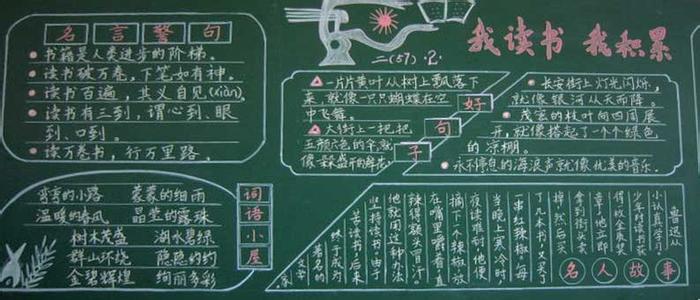 名言警句
书籍是人类进步的阶梯。
读书破万卷，下笔如有神。
读书百遍，其义自见(xiàn)。
读书有三到，谓心到、眼
到、口到。
读万卷书，行万里路。
二(5)2
我读书 我积累
一片片黄叶从树上飘落下
来，就像一只只蝴蝶在空
中飞舞。
大街上一把把
五颜六色的伞，就
像一朵朵盛开的鲜花。
好
句
子
长安街上灯光闪烁，
就像银河从天而降。
茂密的枝叶向四周展
开，就像搭起了一个个绿色
的凉棚。
永不停息的海浪声就像优美的音乐。
弯弯的小路 蒙蒙的细雨
温暖的春风 晶莹的露珠
树木茂盛 湖水碧绿
群山环绕 隐隐约约
金碧辉煌 绚丽多彩
词语小屋
名人故事
鲁迅从
小认真学习。
少年时读书
得了故金质奖
章，他立即
拿到街头卖
掉，然后买
了几本书，又买了
一串红辣椒。每
当晚上寒冷时，
夜读难耐，他便
摘下一个辣椒，放
在嘴里嚼着，直
辣得额头冒汗。
他就用这种办法
坚持读书。由于
苦读书，后来
终于成为
著名的
文学家